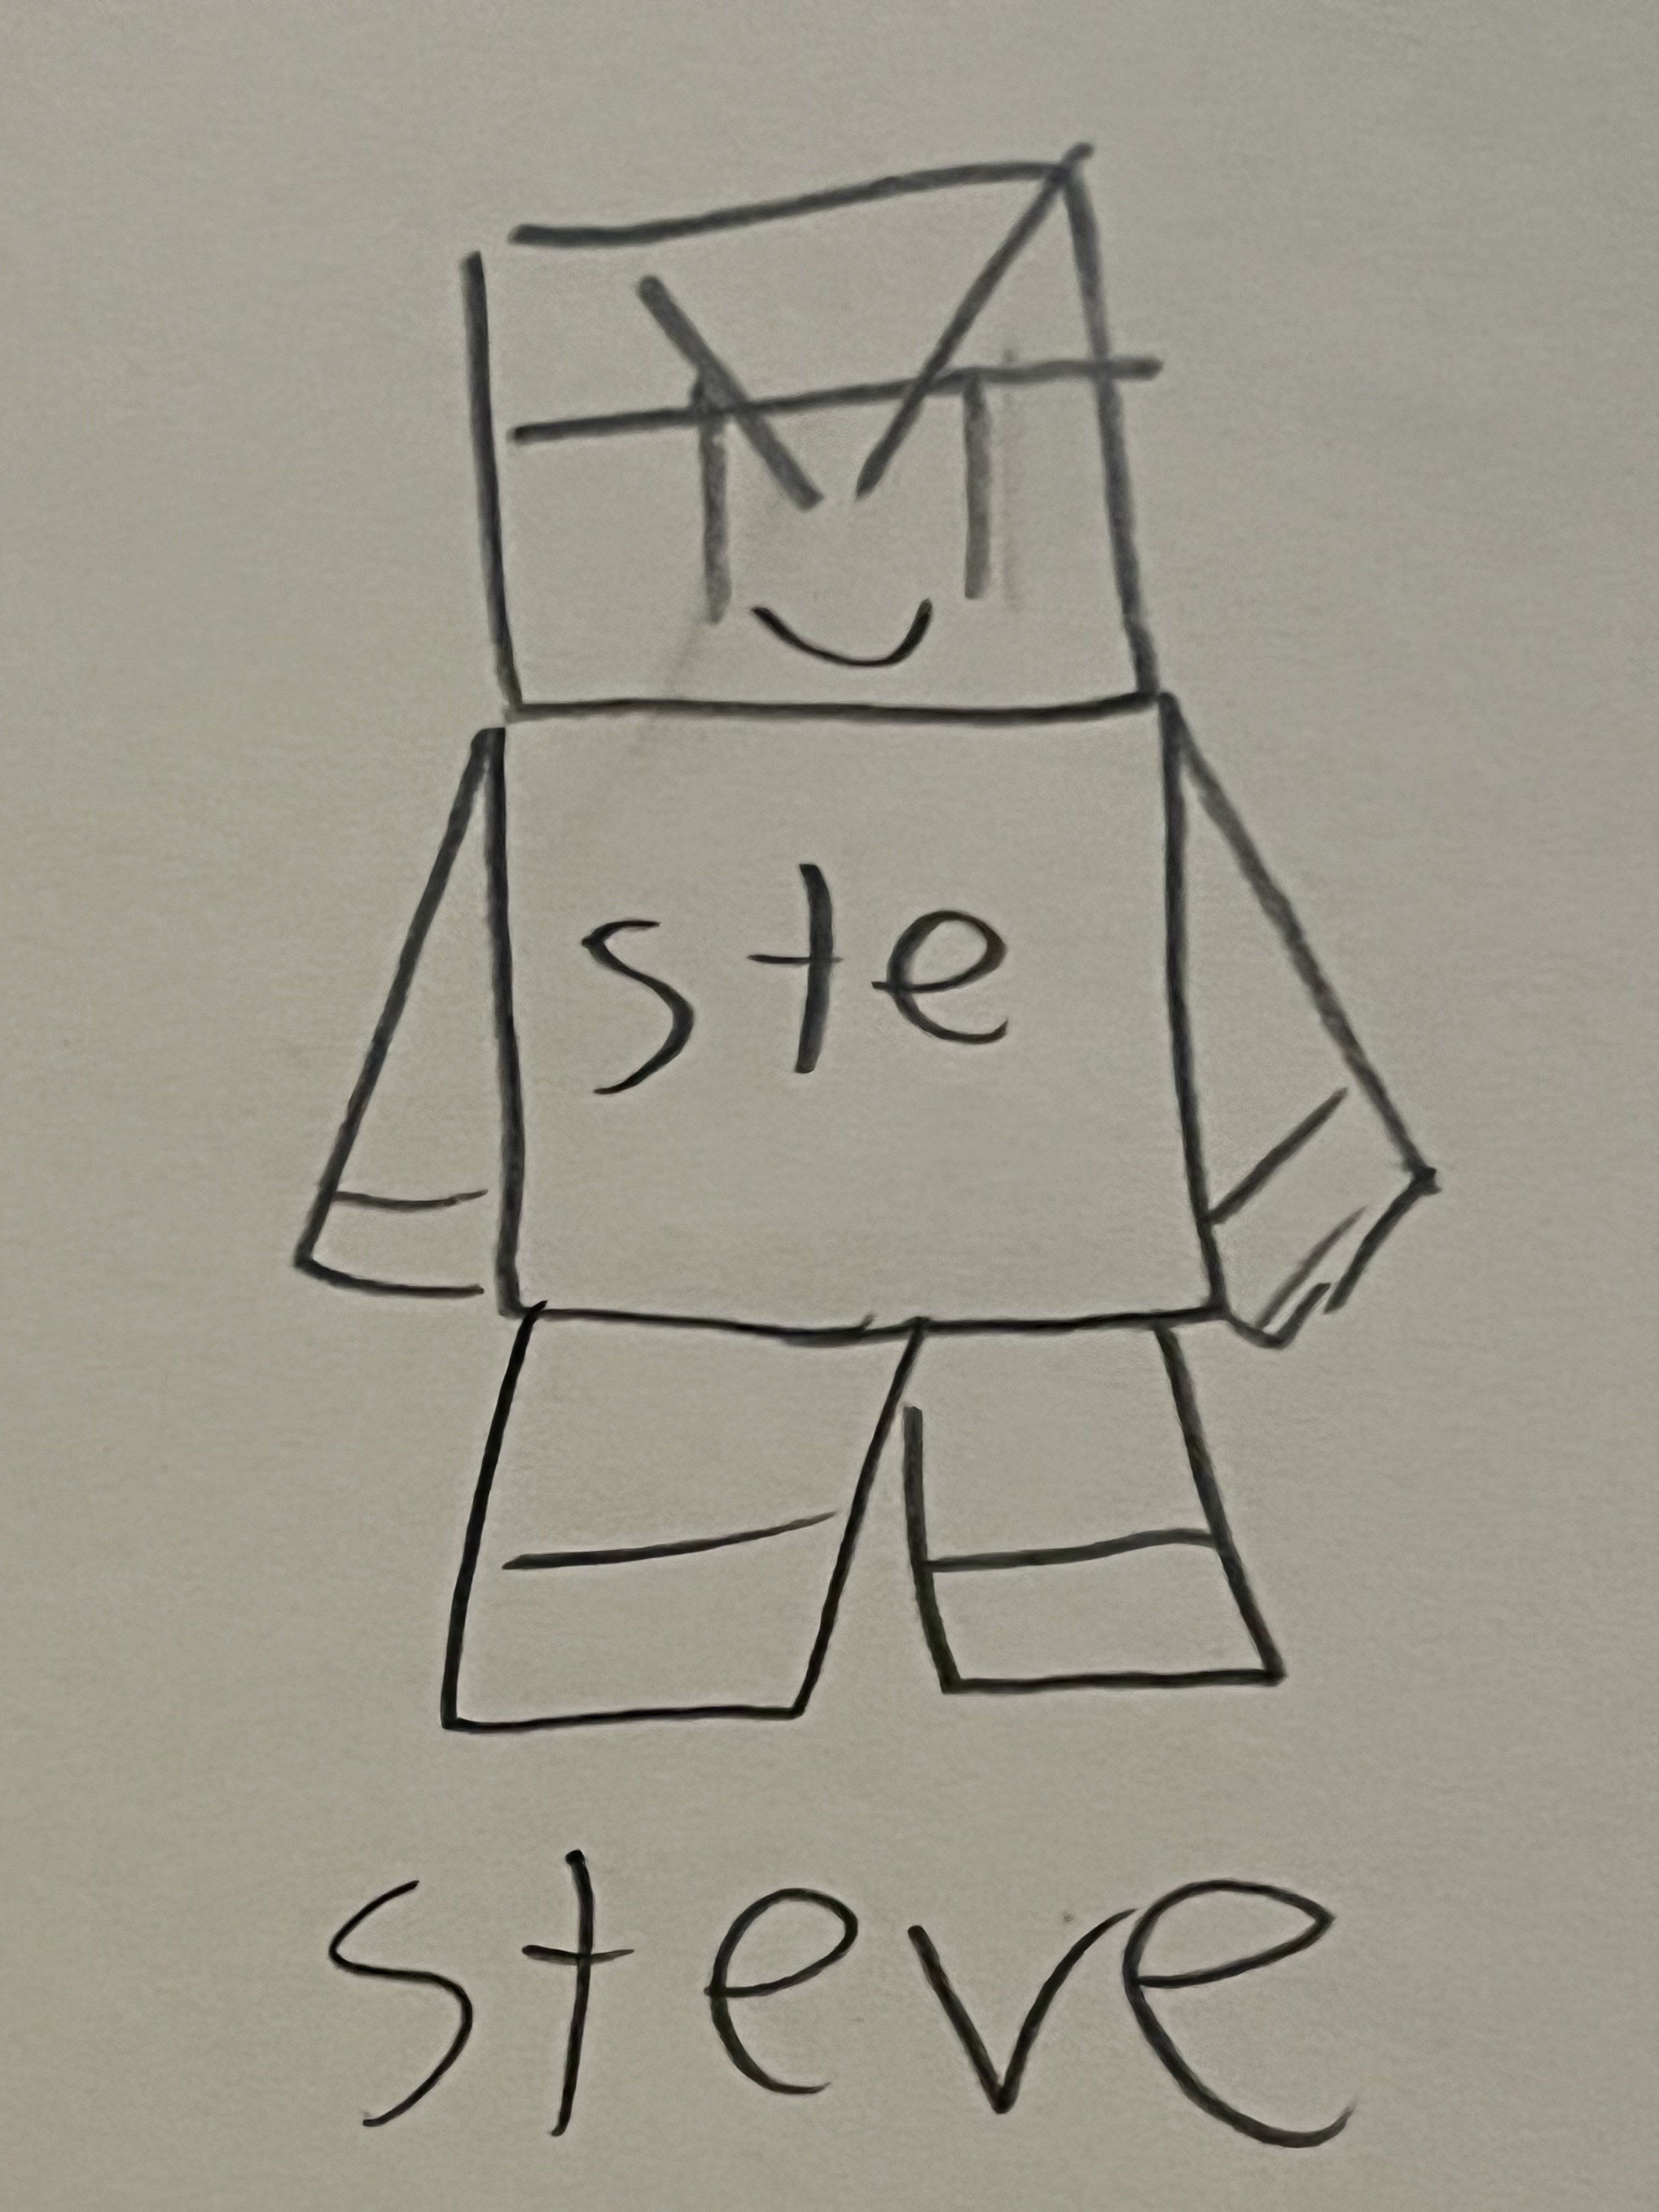 ste
steve